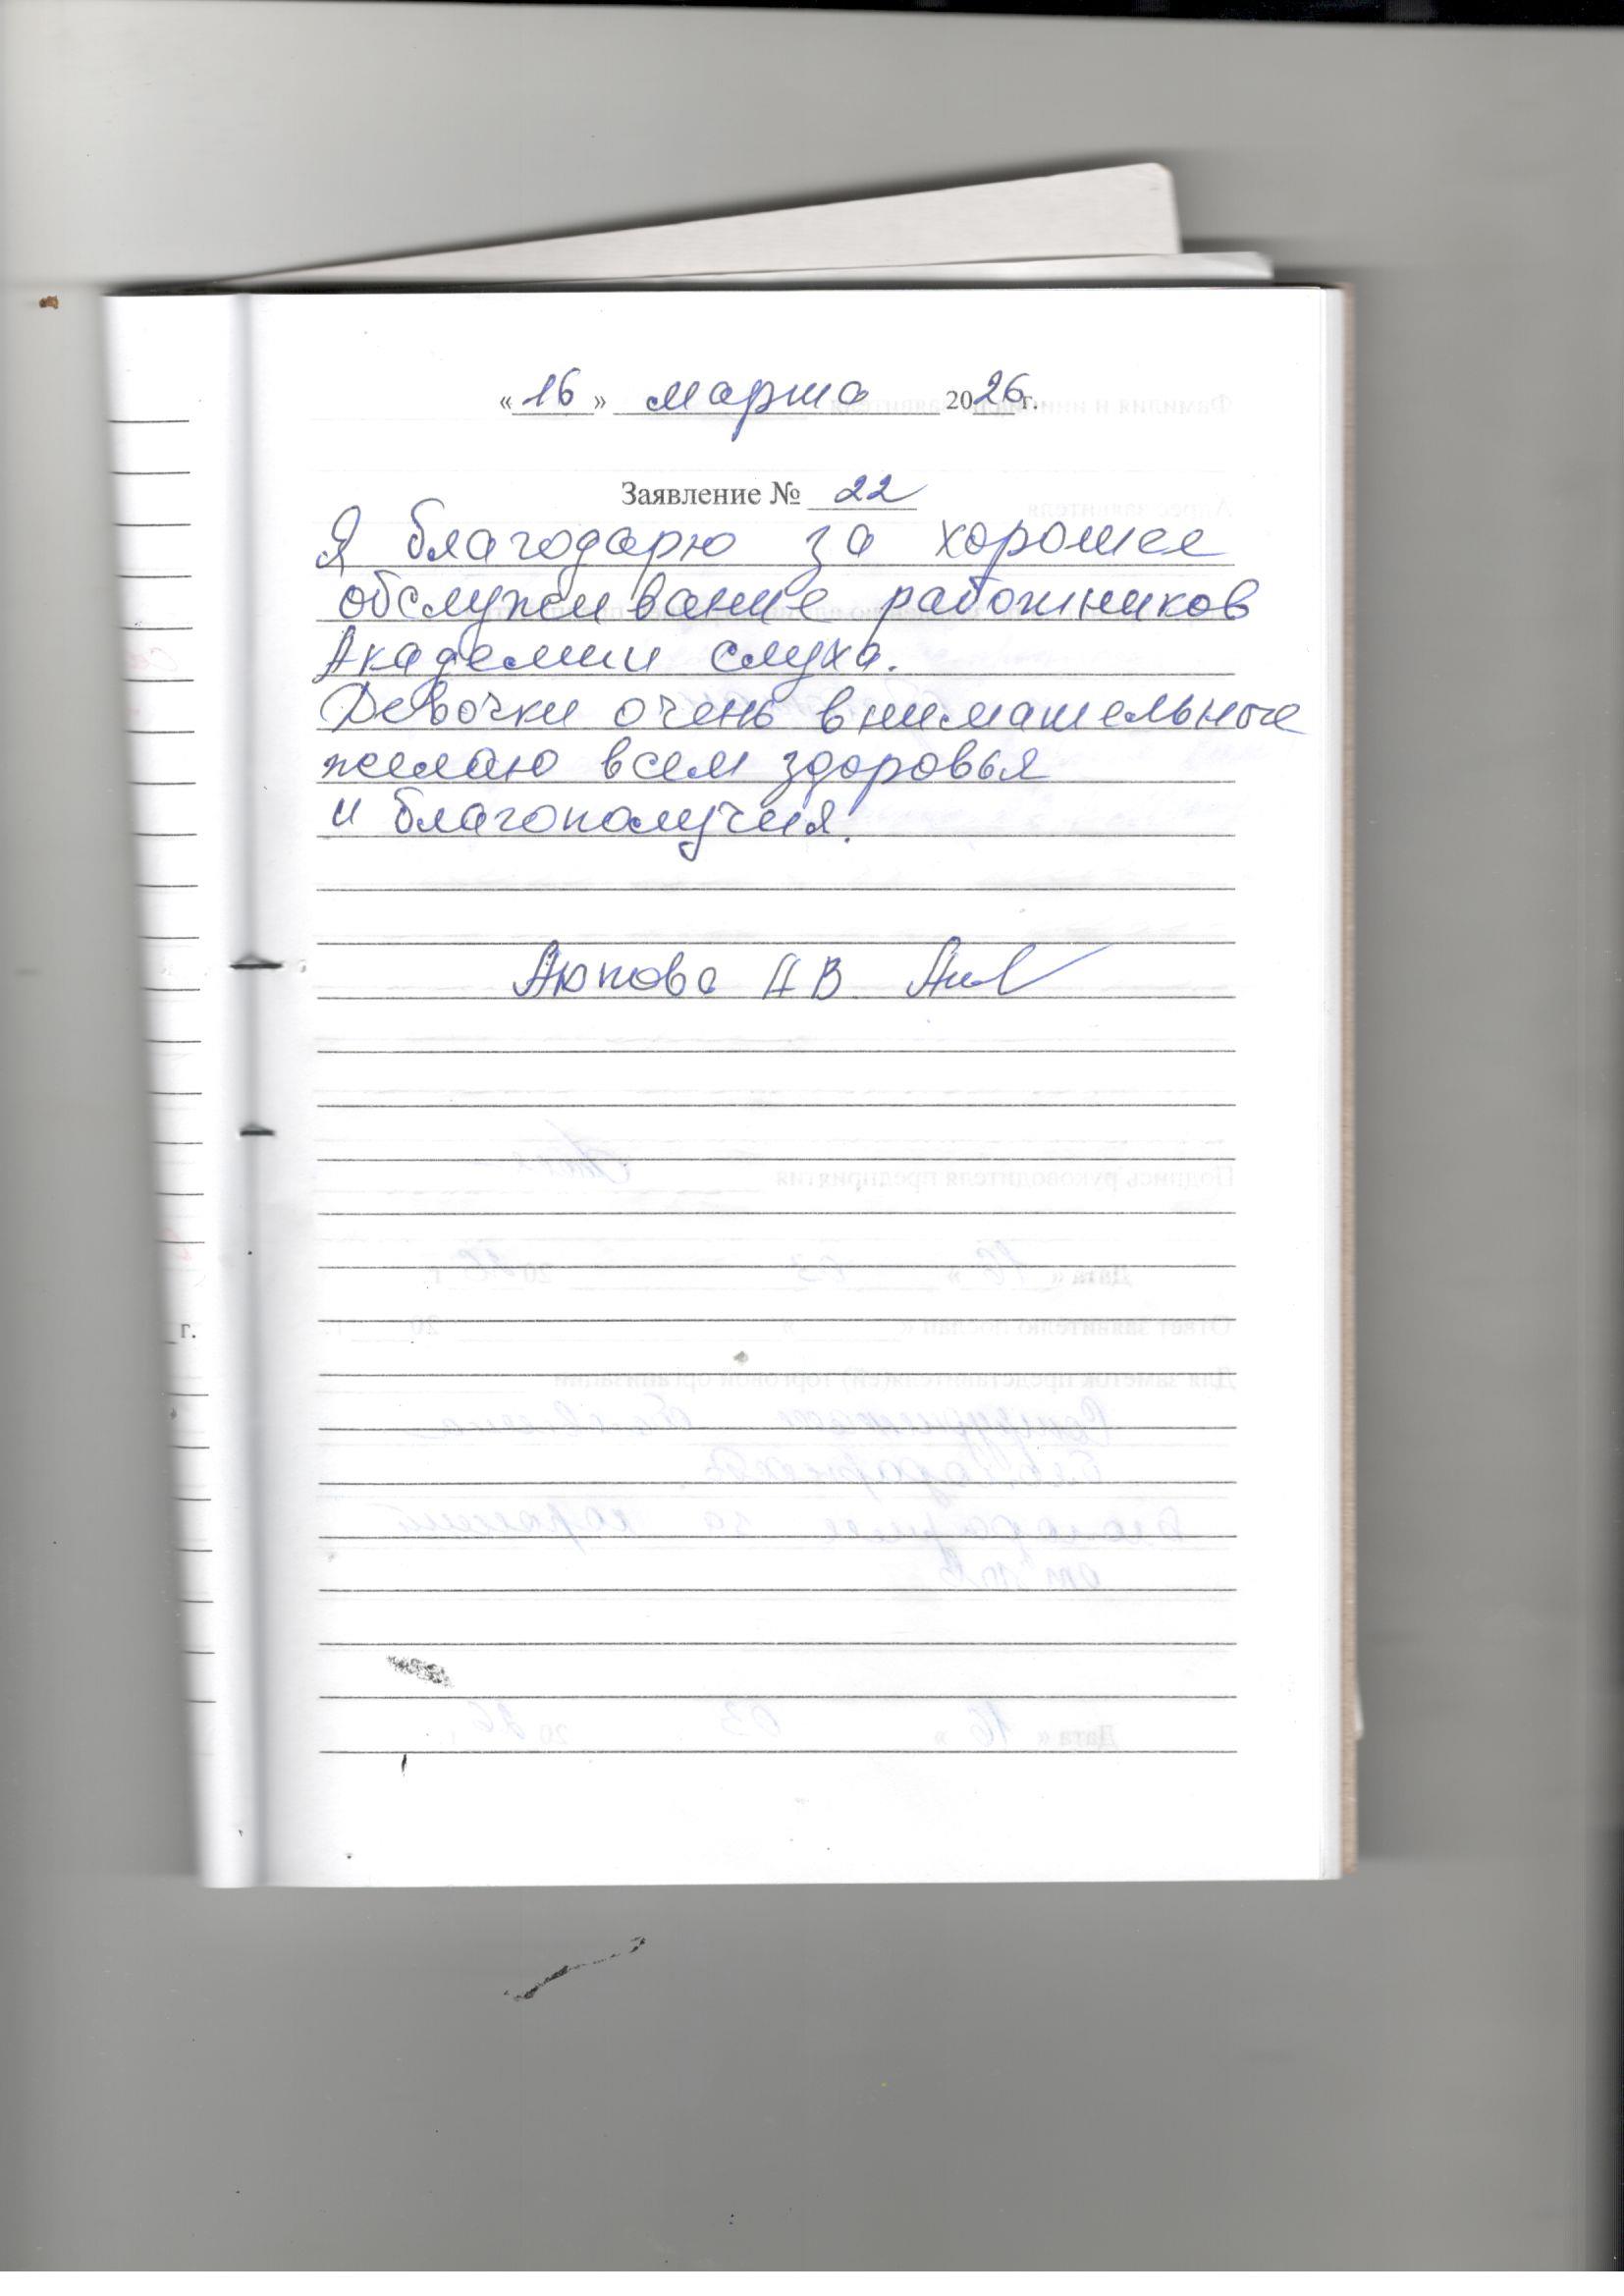 «16» марта 2026г.
Заявление № 22
Я благодарю за хорошее
обслуживание работников
Академии слуха.
Девочки очень внимательные
желаю всем здоровья
и благополучия.
Аюпова А В.
г.